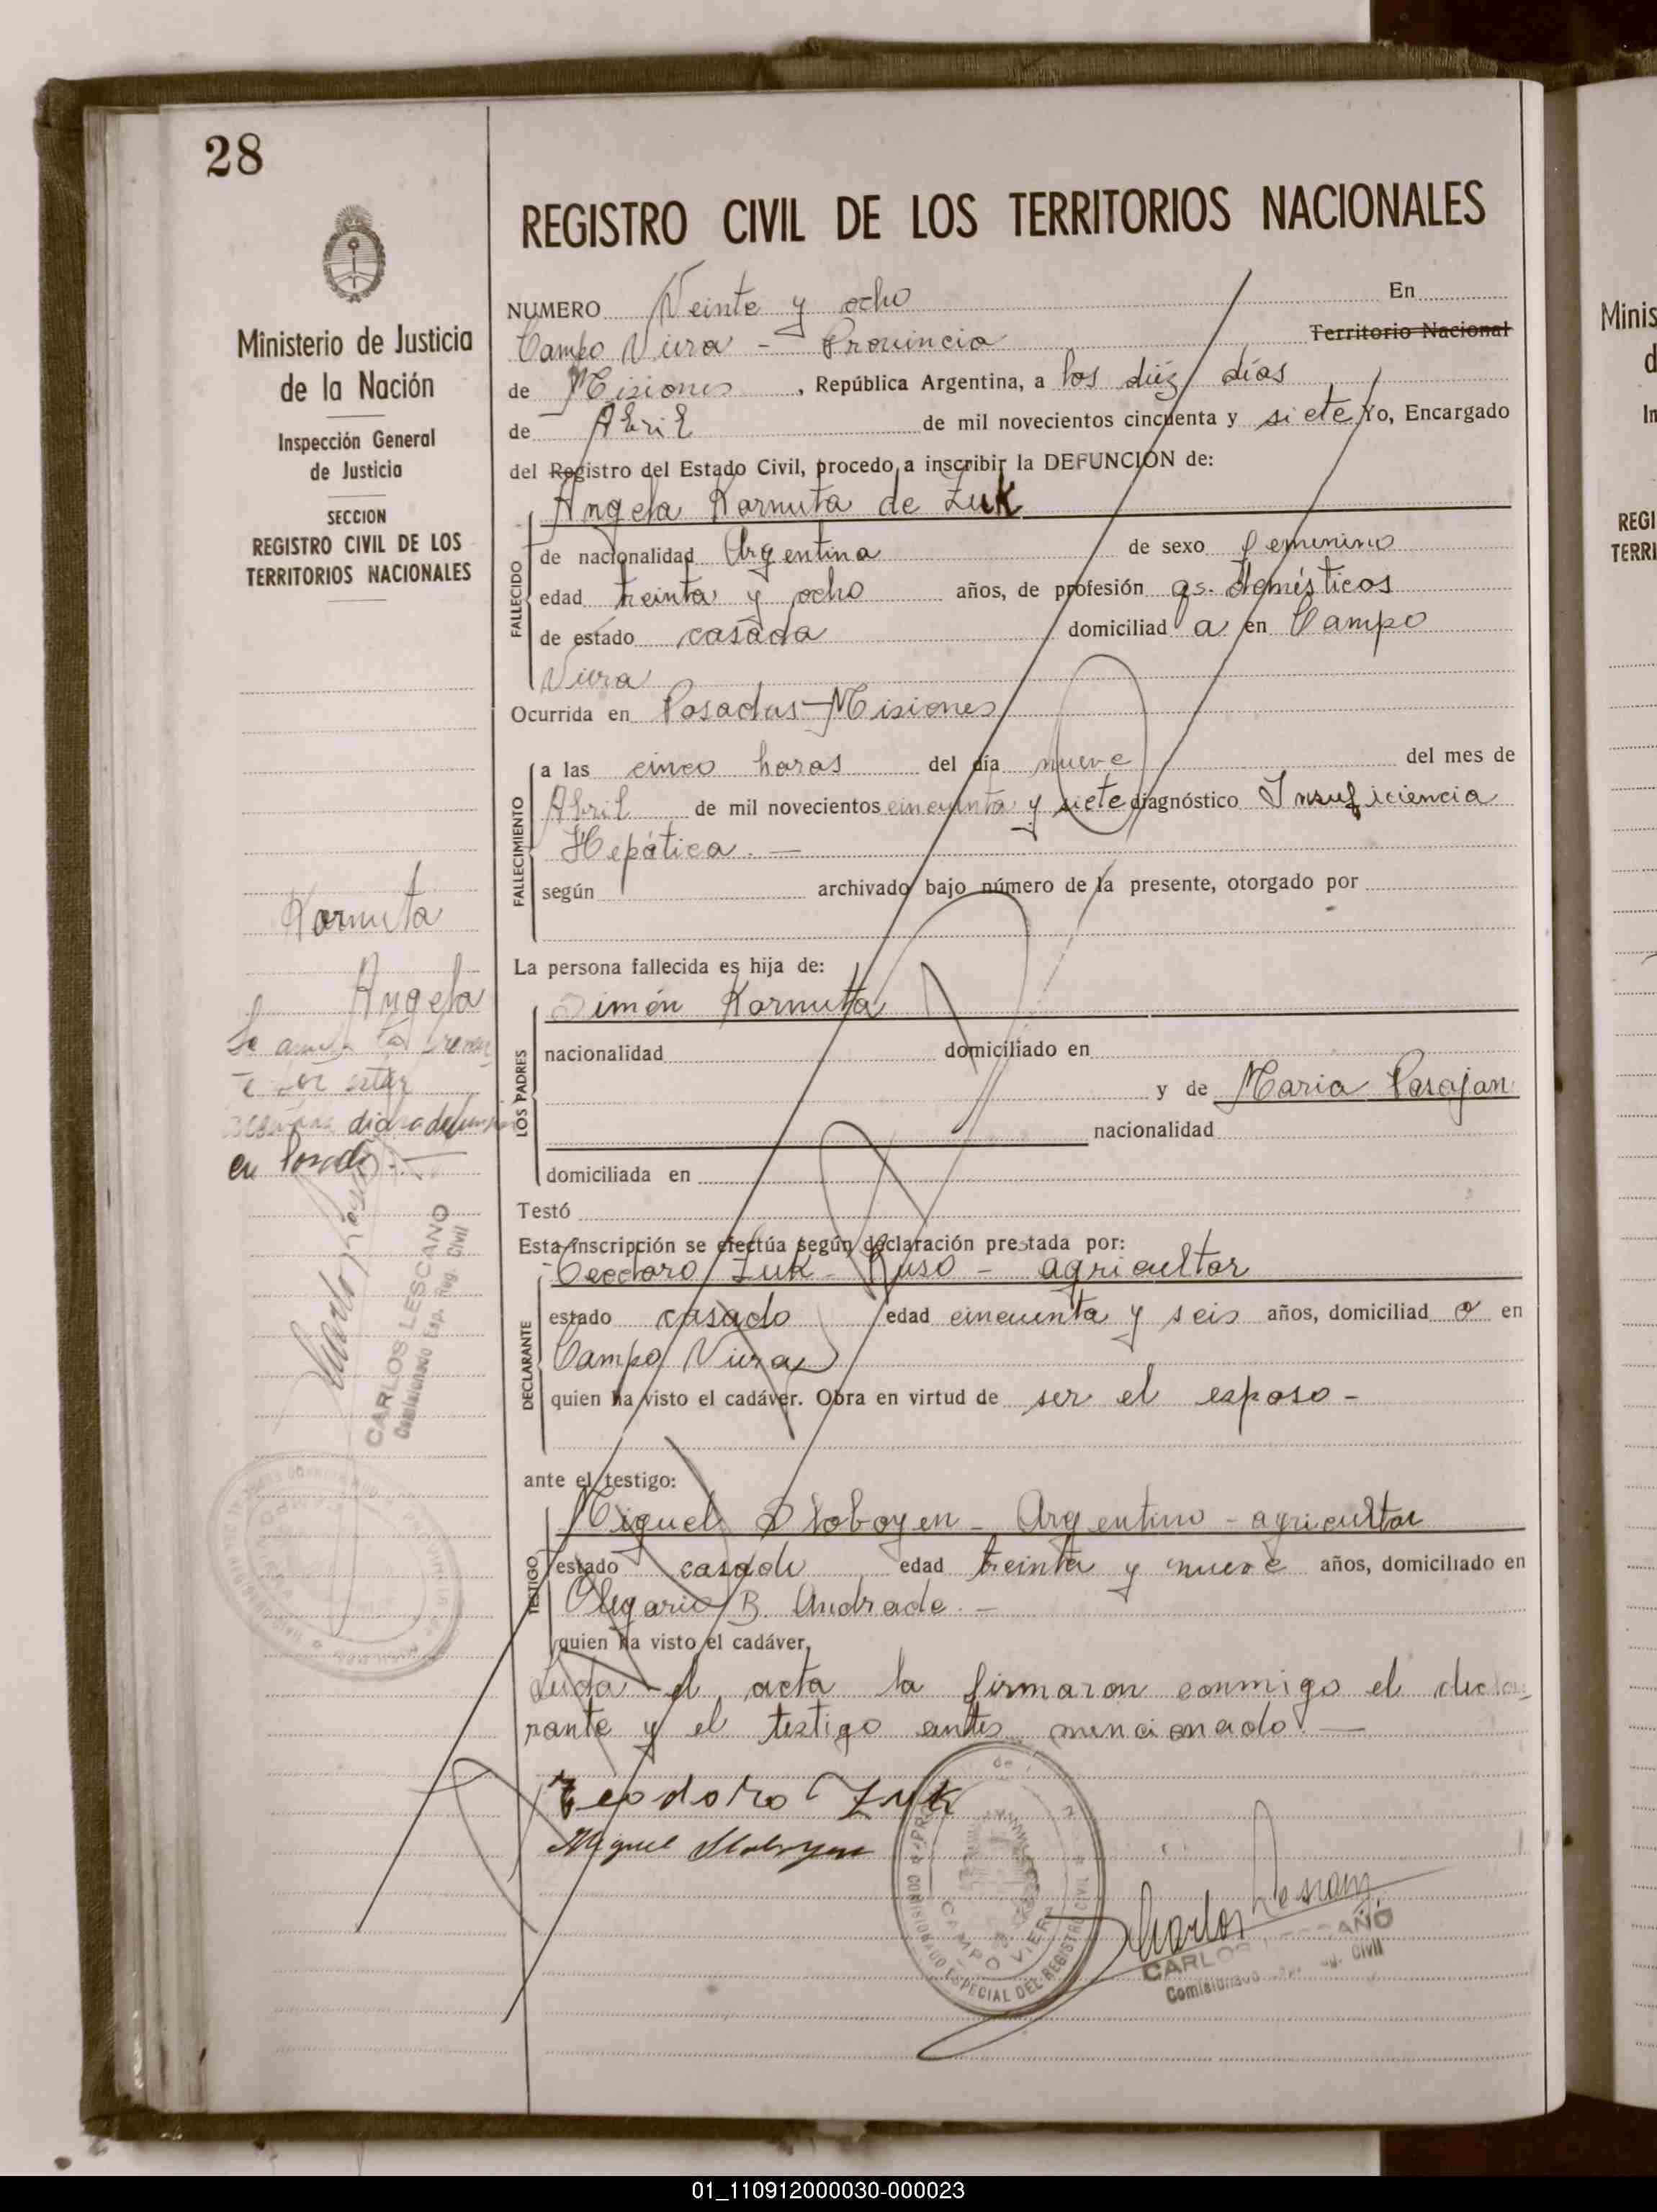 28
Ministerio de Justicia
de la Nación
Inspección General
de Justicia
SECCION
REGISTRO CIVIL DE LOS
TERRITORIOS NACIONALES
Kornuta
Angela
Se anula la presen
te por estar
dicha defunción
en Posadas.-
CARLOS LESCANO
Comisionado Esp. Reg. Civil
REGISTRO CIVIL DE LOS TERRITORIOS NACIONALES
NUMERO Veinte y ocho En
Campo Viera - Provincia Territorio Nacional
de Misiones, República Argentina, a los diéz días
de Abril de mil novecientos cincuenta y siete Yo, Encargado
del Registro del Estado Civil, procedo a inscribir la DEFUNCION de:
Angela Kornuta de Zuk
FALLECIDO
de nacionalidad Argentina de sexo femenino
edad treinta y ocho años, de profesión qs. domésticos
de estado casada domiciliad a en Campo
Viera
Ocurrida en Posadas-Misiones
FALLECIMIENTO
a las cinco horas del día nueve del mes de
Abril de mil novecientos cincuenta y siete diagnóstico Insuficiencia
Hepática. —
según archivado bajo número de la presente, otorgado por
La persona fallecida es hija de:
LOS PADRES
Simón Kornuta
nacionalidad domiciliado en
y de Maria Parajan
nacionalidad
domiciliada en
Testó
Esta inscripción se efectúa según declaración prestada por:
DECLARANTE
Teodoro Zuk - Ruso - agricultor
estado casado edad cincuenta y seis años, domiciliad o en
Campo Viera
quien ha visto el cadáver. Obra en virtud de ser el esposo -
ante el testigo:
TESTIGO
Miguel Sloboyen - Argentino - agricultor
estado casado edad treinta y nueve años, domiciliado en
Olegario B. Andrade. —
quien ha visto el cadáver,
Leída el acta la firmaron conmigo el decla-
rante y el testigo antes mencionado. —
Teodoro Zuk
Miguel Sloboyen
COMISIONADO ESPECIAL DEL REGISTRO CIVIL
CAMPO VIERA
Carlos Lescano
CARLOS LESCANO
Comisionado Reg. Civil
Minis
d
In
REGI
TERRI
01_110912000030-000023